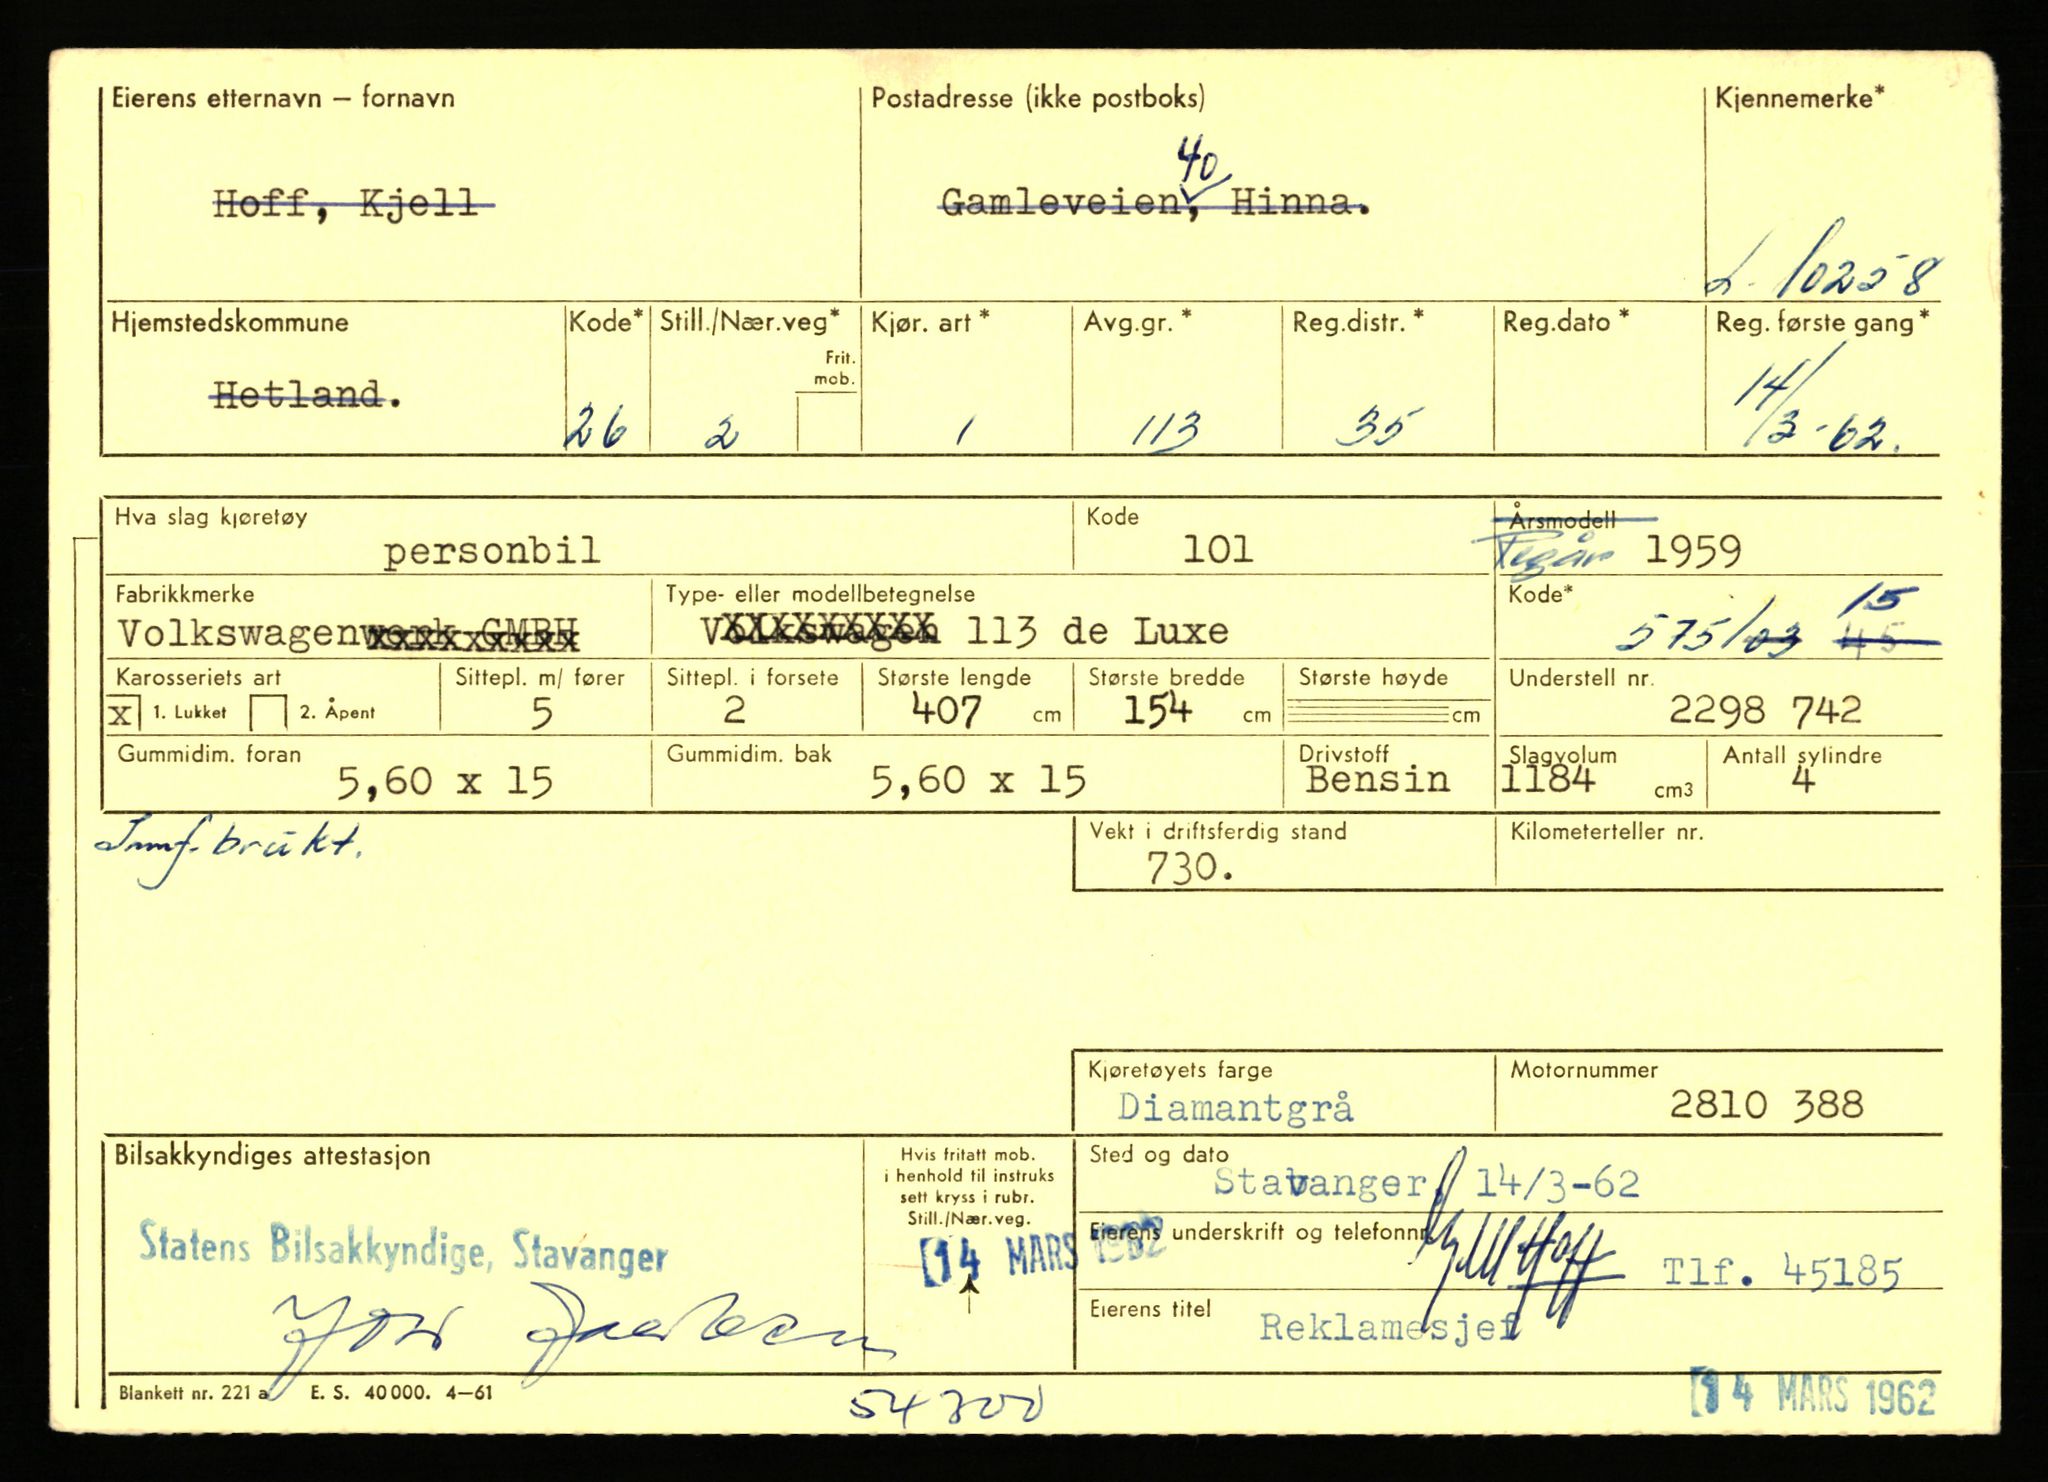 Eierens etternavn – fornavn Postadresse (ikke postboks) Kjennemerke*
40
Hoff, Kjell Gamleveien, Hinna.
L-10258
Hjemstedskommune Kode* Still./Nær.veg* Kjør. art * Avg.gr. * Reg.distr. * Reg.dato * Reg. første gang*
Frit.
mob.
Hetland. 26 2 1 113 35 14/3-62.
Hva slag kjøretøy Kode Årsmodell
personbil 101 Regår 1959
Fabrikkmerke Type- eller modellbetegnelse Kode* 15
Volkswagenwerk GMBH Volkswagen 113 de Luxe 575/03 45
Karosseriets art Sittepl. m/ fører Sittepl. i forsete Største lengde Største bredde Største høyde Understell nr.
x 1. Lukket 2. Åpent 5 2 407 cm 154 cm cm 2298 742
Gummidim. foran Gummidim. bak Drivstoff Slagvolum Antall sylindre
5,60 x 15 5,60 x 15 Bensin 1184 cm3 4
Innf. brukt.
Vekt i driftsferdig stand Kilometerteller nr.
730.
Kjøretøyets farge Motornummer
Diamantgrå 2810 388
Bilsakkyndiges attestasjon Hvis fritatt mob.
i henhold til instruks
sett kryss i rubr.
Still./Nær.veg.
Sted og dato
Stavanger, 14/3-62
Statens Bilsakkyndige, Stavanger
14 MARS 1962
Eierens underskrift og telefonnr.
Kjell Hoff Tlf. 45185
Eierens titel
Reklamesjef
Blankett nr. 221 a E. S. 40 000. 4–61
54300
14 MARS 1962